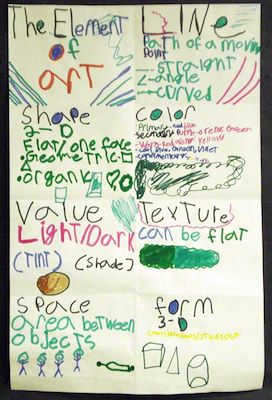 The Element
of
art
LINE
Path of a moving
point
- straight
- angle
- curved
Shape
2-D
Flat/one face
• Geometric
• organic
Color
Primary-red
secondary
- cool blue, Green, violet
Value
Light/Dark
(TINT) (Shade)
TexTure
can be flat
SPace
area between
objects
form
3-D